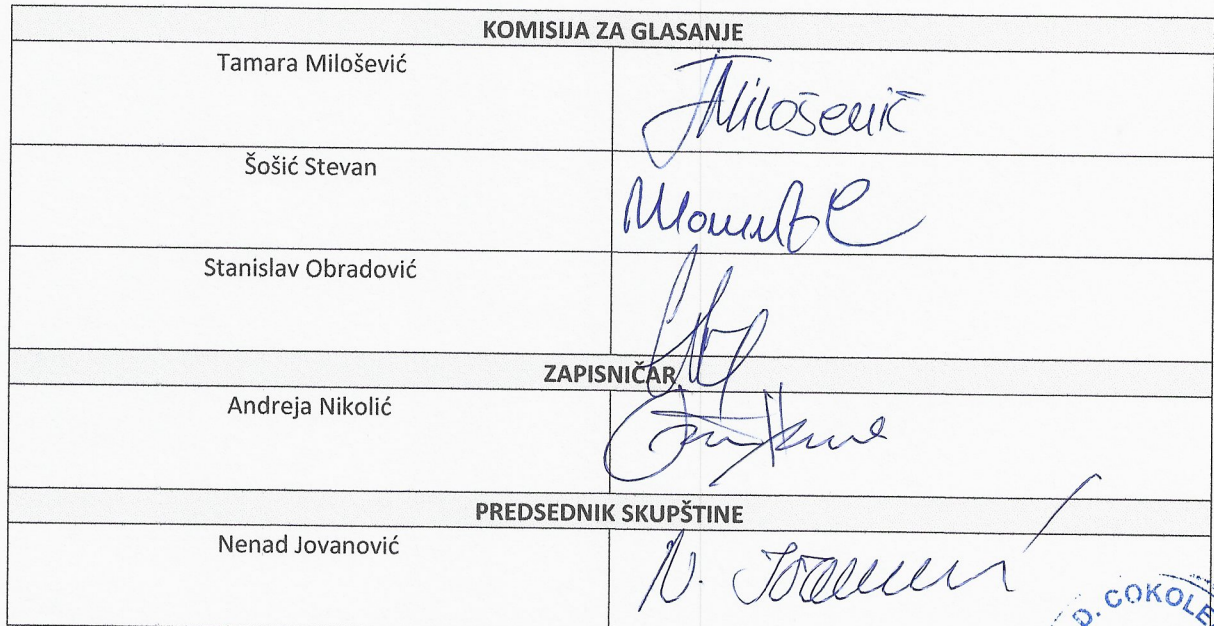 KOMISIJA ZA GLASANJE
Tamara Milošević
TMilošević
Šošić Stevan
Stanislav Obradović
ZAPISNIČAR
Andreja Nikolić
PREDSEDNIK SKUPŠTINE
Nenad Jovanović
D. COKOLE